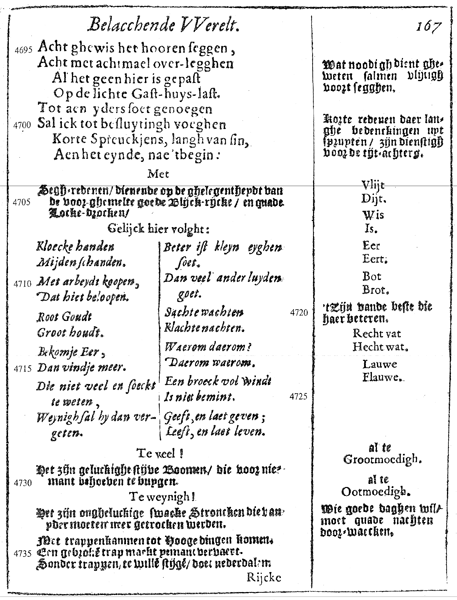 Belacchende VVerelt. 167
4695 Acht ghewis het hooren seggen,
Acht met achtmael over-legghen
Al het geen hier is gepast
Op de lichte Gast-huys-last.
Tot aen yders soet genoegen
4700 Sal ick tot besluytingh voeghen
Korte Spreuckjens, langh van sin,
Aen het eynde, nae 'tbegin:
Met
Segh-redenen/ dienende op de ghelegentheydt van
4705 de voor-ghemelte goede Blijck-rijcke/ en quade
Locke-brocken/
Gelijck hier volght:
Kloecke handen
Mijden schanden.
4710 Met arbeydt koopen,
Dat hiet beloopen.
Root Goudt
Groot houdt.
Bekomje Eer,
4715 Dan vindje meer.
Die niet veel en soeckt
te weten,
Weynigh sal hy dan ver-
geten.
Beter ist kleyn eyghen
soet.
Dan veel ander luyden
goet.
Sachte wachten 4720
Klachte nachten.
Waerom daerom?
Daerom waerom.
Een broeck vol Windt
Is niet bemint. 4725
Geeft, en laet geven;
Leeft, en laet leven.
Te veel!
Het zijn geluckigh stijve Boomen/ die voor nie-
4730 mant behoeven te buygen.
Te weynigh!
Het zijn ongheluckige swacke Stroncken die van
yder moeten meer getrocken werden.
Met trappen kanmen tot Hooge dingen komen.
4735 Een gebroke trap maeckt yemant vervaert.
Sonder trappen, te wille stijge/ doet nederdalen.
Rijcke
Wat noodigh dient ghe-
weten salmen vlijtigh
voort segghen.
Korte redenen daer lan-
ghe bedenckingen uyt
spruyten/ zijn dienstigh
voor de tijt-achters.
Vlijt
Dijt.
Wis
Is.
Eer
Eert.
Bot
Brot.
't Zijn vande beste die
haer beteren.
Recht vat
Hecht wat.
Lauwe
Flauwe.
al te
Grootmoedigh.
al te
Ootmoedigh.
Wie goede daghen wil/
moet quade nachten
door-waecken.